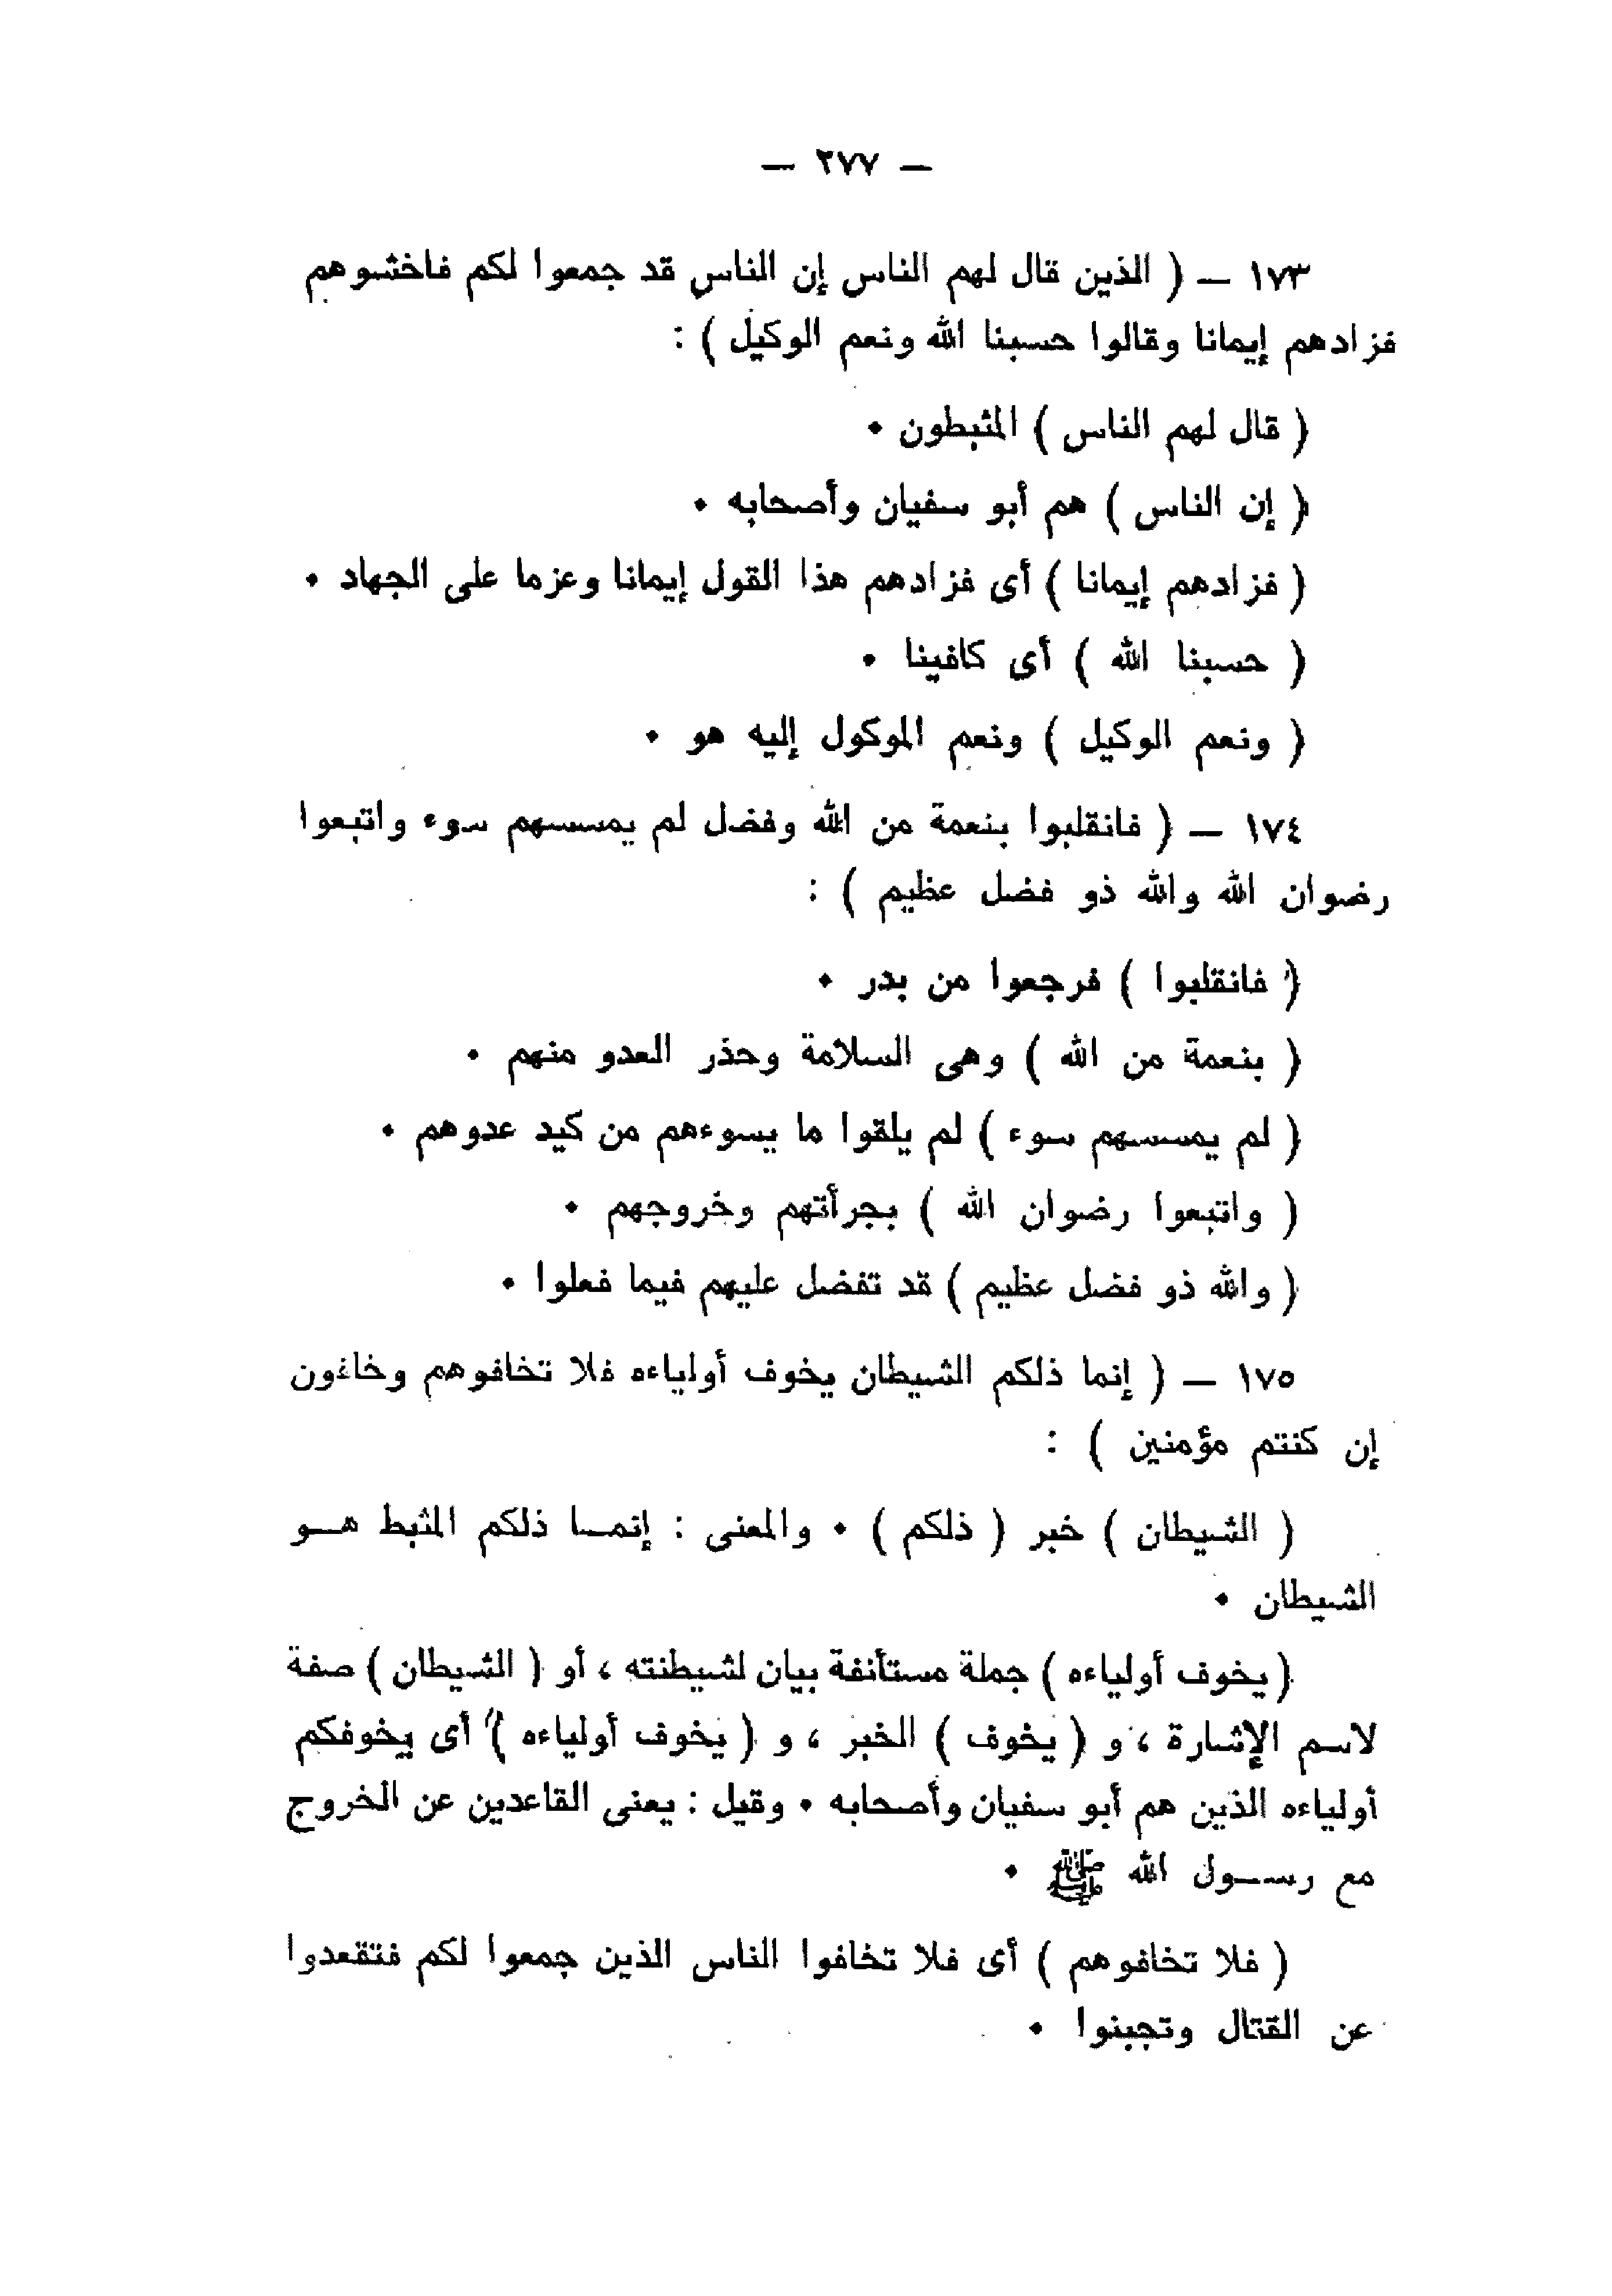 — ٢٧٧ —
١٧٣ — ( الذين قال لهم الناس إن الناس قد جمعوا لكم فاخشوهم
فزادهم إيمانا وقالوا حسبنا الله ونعم الوكيل ) :
( قال لهم الناس ) المثبطون .
( إن الناس ) هم أبو سفيان وأصحابه .
( فزادهم إيمانا ) أى فزادهم هذا القول إيمانا وعزما على الجهاد .
( حسبنا الله ) أى كافينا .
( ونعم الوكيل ) ونعم الموكول إليه هو .
١٧٤ — ( فانقلبوا بنعمة من الله وفضل لم يمسسهم سوء واتبعوا
رضوان الله والله ذو فضل عظيم ) :
( فانقلبوا ) فرجعوا من بدر .
( بنعمة من الله ) وهى السلامة وحذر العدو منهم .
( لم يمسسهم سوء ) لم يلقوا ما يسوءهم من كيد عدوهم .
( واتبعوا رضوان الله ) بجرأتهم وخروجهم .
( والله ذو فضل عظيم ) قد تفضل عليهم فيما فعلوا .
١٧٥ — ( إنما ذلكم الشيطان يخوف أولياءه فلا تخافوهم وخافون
إن كنتم مؤمنين ) :
( الشيطان ) خبر ( ذلكم ) . والمعنى : إنمـا ذلكم المثبط هـو
الشيطان .
( يخوف أولياءه ) جملة مستأنفة بيان لشيطنته ، أو ( الشيطان ) صفة
لاسم الإشارة ، و ( يخوف ) الخبر ، و ( يخوف أولياءه ) أى يخوفكم
أولياءه الذين هم أبو سفيان وأصحابه . وقيل : يعنى القاعدين عن الخروج
مع رسـول الله ﷺ .
( فلا تخافوهم ) أى فلا تخافوا الناس الذين جمعوا لكم فتقعدوا
عن القتال وتجبنوا .